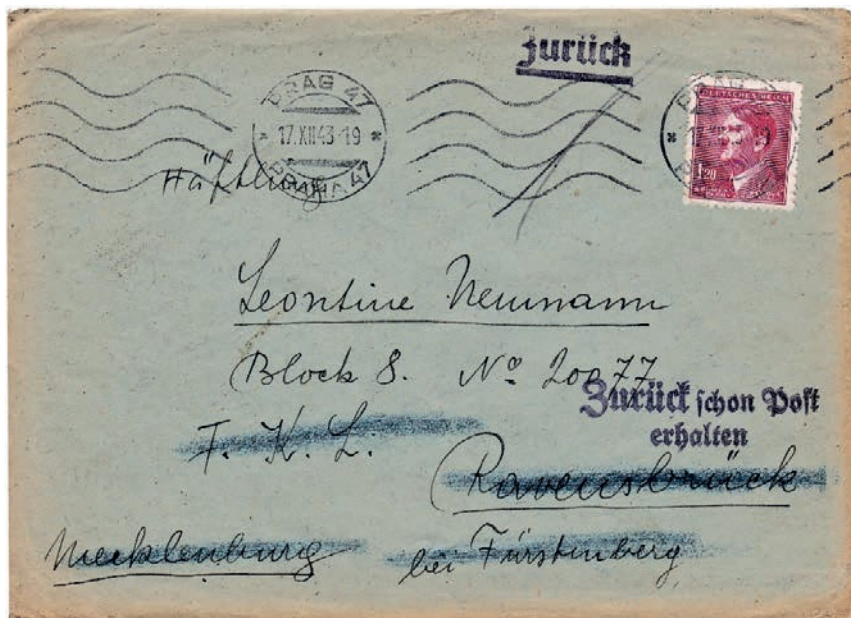 Zurück
PRAG 47
17.XII.43-19
PRAHA 47
DEUTSCHES REICH
1.20
Häftling
Leontine Neumann
Block 8. No 20077
Zurück schon Post
erhalten
F. K. L.
Ravensbrück
Mecklenburg bei Fürstenberg